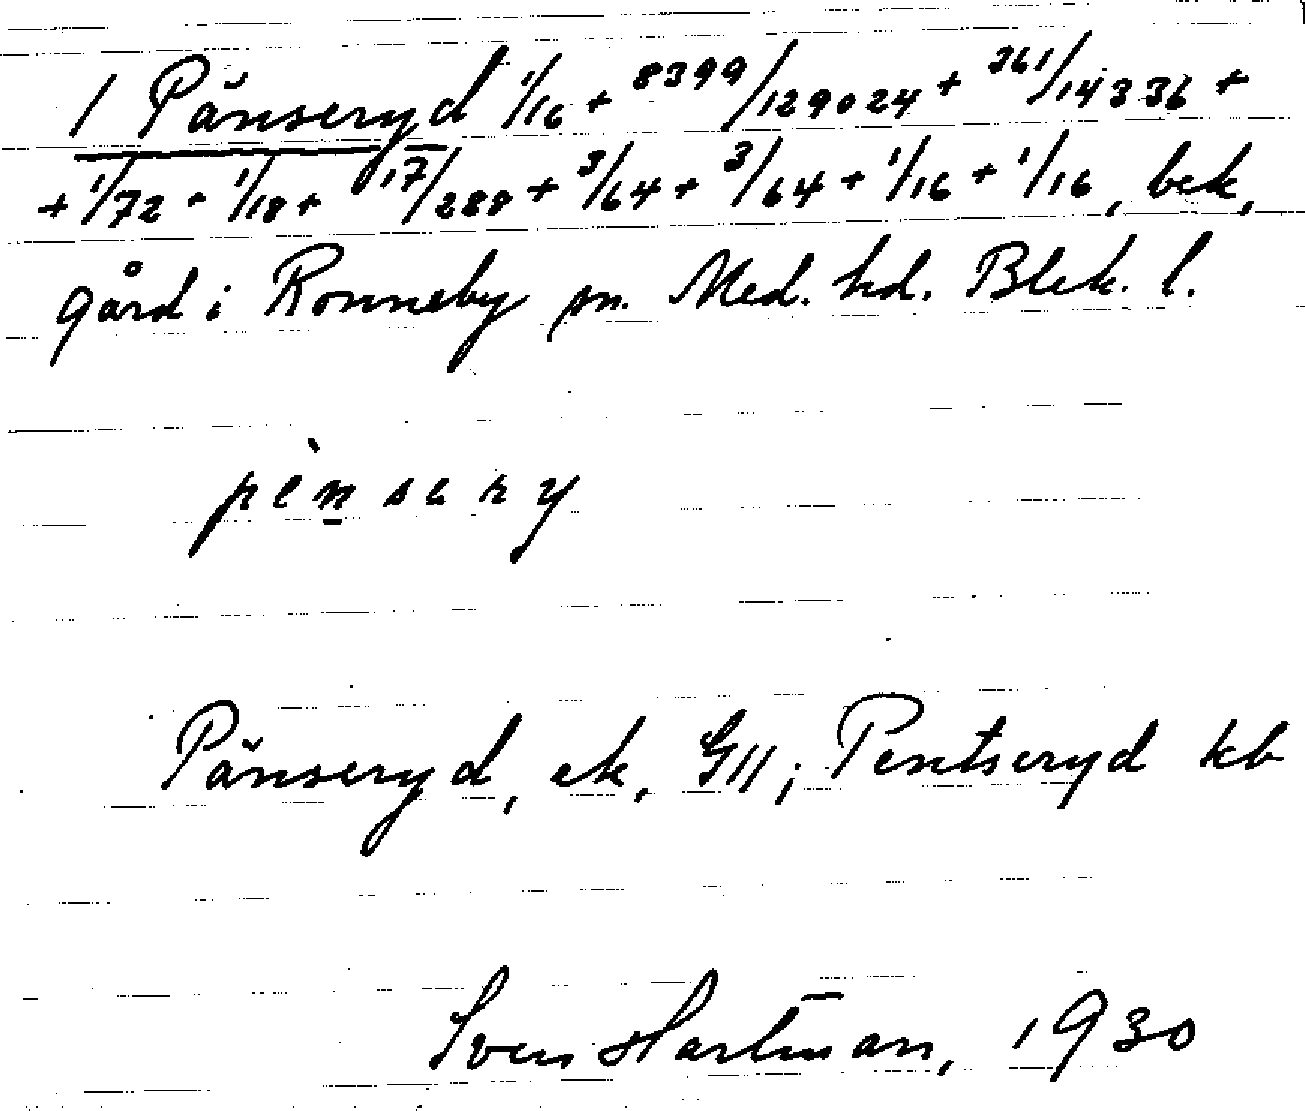 1 Pänseryd 1/16 + 8399/129024 + 361/14336 +
+ 1/72 + 1/18 + 17/288 + 3/64 + 3/64 + 1/16 + 1/16, bek,
gård i Ronneby sn. Med. hd. Blek. l.
pèn̲sery
Pänseryd, ek, G11; Pentseryd kb
Sven Hartman, 1930